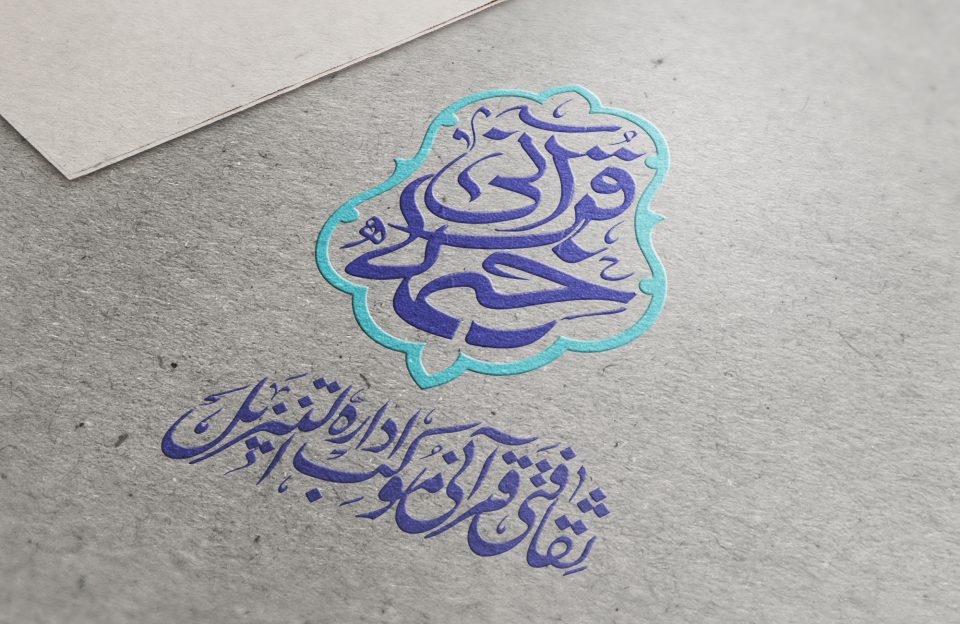 قرآنی
ثقافتی قرآنی موکب ادارہ التنزیل